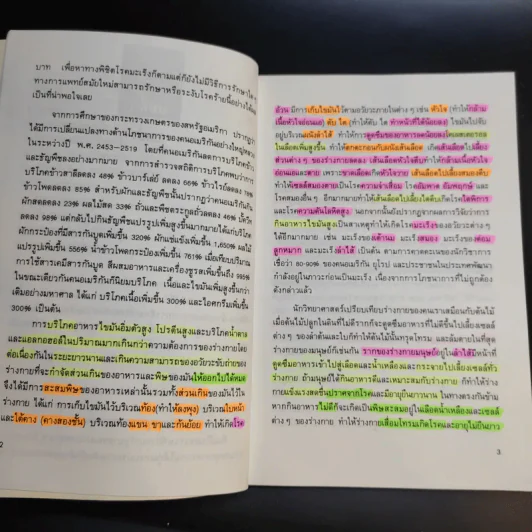 บาท เพื่อหาทางพิชิตโรคมะเร็งก็ตามแต่ก็ยังไม่มีวิธีการรักษาใด ๆ
ทางการแพทย์สมัยใหม่สามารถรักษาหรือระงับโรคร้ายนี้อย่างได้ผล
เป็นที่น่าพอใจเลย
จากการศึกษาของกระทรวงเกษตรของสหรัฐอเมริกา ปรากฏว่า
ได้มีการเปลี่ยนแปลงทางด้านโภชนาการของคนอเมริกาอย่างใหญ่หลวง
ในระหว่างปี พ.ศ. 2453–2519 โดยที่คนอเมริกันลดการบริโภคข้าว
และธัญพืชลงอย่างมากมาย จากการสำรวจสถิติการบริโภคพบว่าการ
บริโภคข้าวสาลีลดลง 48% ข้าวบาร์เลย์ ลดลง 66% ข้าวไรย์ลดลง
ข้าวโพดลดลง 85% สำหรับผักและธัญพืชนั้นปรากฏว่าคนอเมริกันกิน
ผักสดลดลง 23% ผลไม้สด 33% ถั่วและพืชตระกูลถั่วลดลง 46% น้ำตาล
ลดลง 98% แต่กลับไปกินธัญพืชแปรรูปเพิ่มสูงขึ้นมากมายได้แก่บริโภค
ผักกระป๋องที่มีสารกันบูดเพิ่มขึ้น 320% ผักแช่แข็งเพิ่มขึ้น 1,650% ผลไม้
แปรรูปเพิ่มขึ้น 556% น้ำข้าวโพดกระป๋องเพิ่มขึ้น 761% เมื่อเทียบกับ
การใช้สารเคมีสารกันบูด สีผสมอาหารและเครื่องชูรสเพิ่มขึ้นถึง 995%
ในขณะเดียวกันคนอเมริกันก็นิยมบริโภค เนื้อและไขมันเพิ่มสูงขึ้นกว่า
เดิมอย่างมหาศาล ได้แก่ บริโภคเนื้อเพิ่มขึ้น 300% และไอศกรีมเพิ่มขึ้น
300% เป็นต้น
การบริโภคอาหารไขมันอิ่มตัวสูง โปรตีนสูงและบริโภคน้ำตาล
และแอลกอฮอล์ในปริมาณมากเกินกว่าความต้องการของร่างกายโดย
ต่อเนื่องกันในระยะยาวนานและเกินความสามารถของอวัยวะขับถ่ายของ
ร่างกายที่จะกำจัดส่วนเกินของอาหารและพิษของมันให้ออกไปได้หมด
จึงได้มีการสะสมพิษของอาหารเหล่านั้นรวมทั้งส่วนเกินของมันไว้ใน
ร่างกาย ได้แก่ การเก็บไขมันไว้บริเวณท้อง(ทำให้ลงพุง) บริเวณใบหน้า
และใต้คาง (คางสองชั้น) บริเวณท้องแขน ขาและก้นย้อย ทำให้เกิดโรค
2
อ้วน มีการเก็บไขมันไว้ตามอวัยวะภายในต่าง ๆ เช่น หัวใจ (ทำให้กล้าม
เนื้อหัวใจอ่อนแอ) ตับ ไต (ทำให้ตับ ไต ทำหน้าที่ได้น้อยลง) ไขมันไปจับ
อยู่บริเวณผนังลำไส้ ทำให้การดูดซึมของอาหารลดน้อยลงโคเลสเตอรอล
ในเลือดเพิ่มสูงขึ้น ทำให้ตกตะกอนกับผนังเส้นเลือด เกิดเส้นเลือดไปเลี้ยง
ส่วนต่าง ๆ ของร่างกายลดลง เส้นเลือดหัวใจตีบทำให้กล้ามเนื้อหัวใจ
อ่อนแอและตาย เพราะขาดเลือดเกิดหัวใจวาย เส้นเลือดไปเลี้ยงสมองตีบ
ทำให้เซลล์สมองตายเป็นโรคความจำเสื่อม โรคอัมพาต อัมพฤกษ์ และ
โรคสมองอื่น ๆ อีกมากมายทำให้เส้นเลือดไปเลี้ยงไตตีบเกิดโรคไตพิการ
และโรคความดันโลหิตสูง นอกจากนั้นยังปรากฏจากผลการวิจัยว่าการ
กินอาหารไขมันสูงเป็นสาเหตุทำให้เกิดโรคมะเร็งของอวัยวะต่าง ๆ
ได้อีกมากมาย เช่น มะเร็งของเต้านม มะเร็งสมอง มะเร็งของต่อม
ลูกหมาก และมะเร็งลำไส้ เป็นต้น ตามการคาดคะเนของนักวิชาการ
เชื่อว่า 80-90% ของคนอเมริกัน ยุโรป และประชาชนในประเทศพัฒนา
กำลังอยู่ในภาวะก่อนเป็นมะเร็ง เนื่องจากการโภชนาอาหารที่ไม่ถูกต้อง
ดังกล่าวแล้ว
นักวิทยาศาสตร์เปรียบเทียบร่างกายของคนเราเสมือนกับต้นไม้
เมื่อต้นไม้ปลูกในดินที่ไม่ดีรากก็จะดูดซึมอาหารที่ไม่ดีขึ้นไปเลี้ยงเซลล์
ต่าง ๆ ของลำต้นและใบก็ทำให้ต้นไม้นั้นทรุดโทรม และล้มตายในที่สุด
ร่างกายของมนุษย์ก็เช่นกัน รากของร่างกายมนุษย์อยู่ในลำไส้มีหน้าที่
ดูดซึมอาหารเข้าไปสู่เลือดและน้ำเหลือง และกระจายไปเลี้ยงเซลล์ทั่ว
ร่างกาย ถ้ามนุษย์ได้กินอาหารดีและเหมาะสมกับร่างกาย ก็ทำให้ร่าง
กายแข็งแรงสดชื่นปราศจากโรคและมีอายุยืนยาวนาน ในทางตรงกันข้าม
หากกินอาหารไม่ดีก็จะเกิดเป็นพิษสะสมอยู่ในเลือดน้ำเหลืองและเซลล์
ต่าง ๆ ของร่างกาย ทำให้ร่างกายเสื่อมโทรมเกิดโรคและอายุไม่ยืนยาว
3